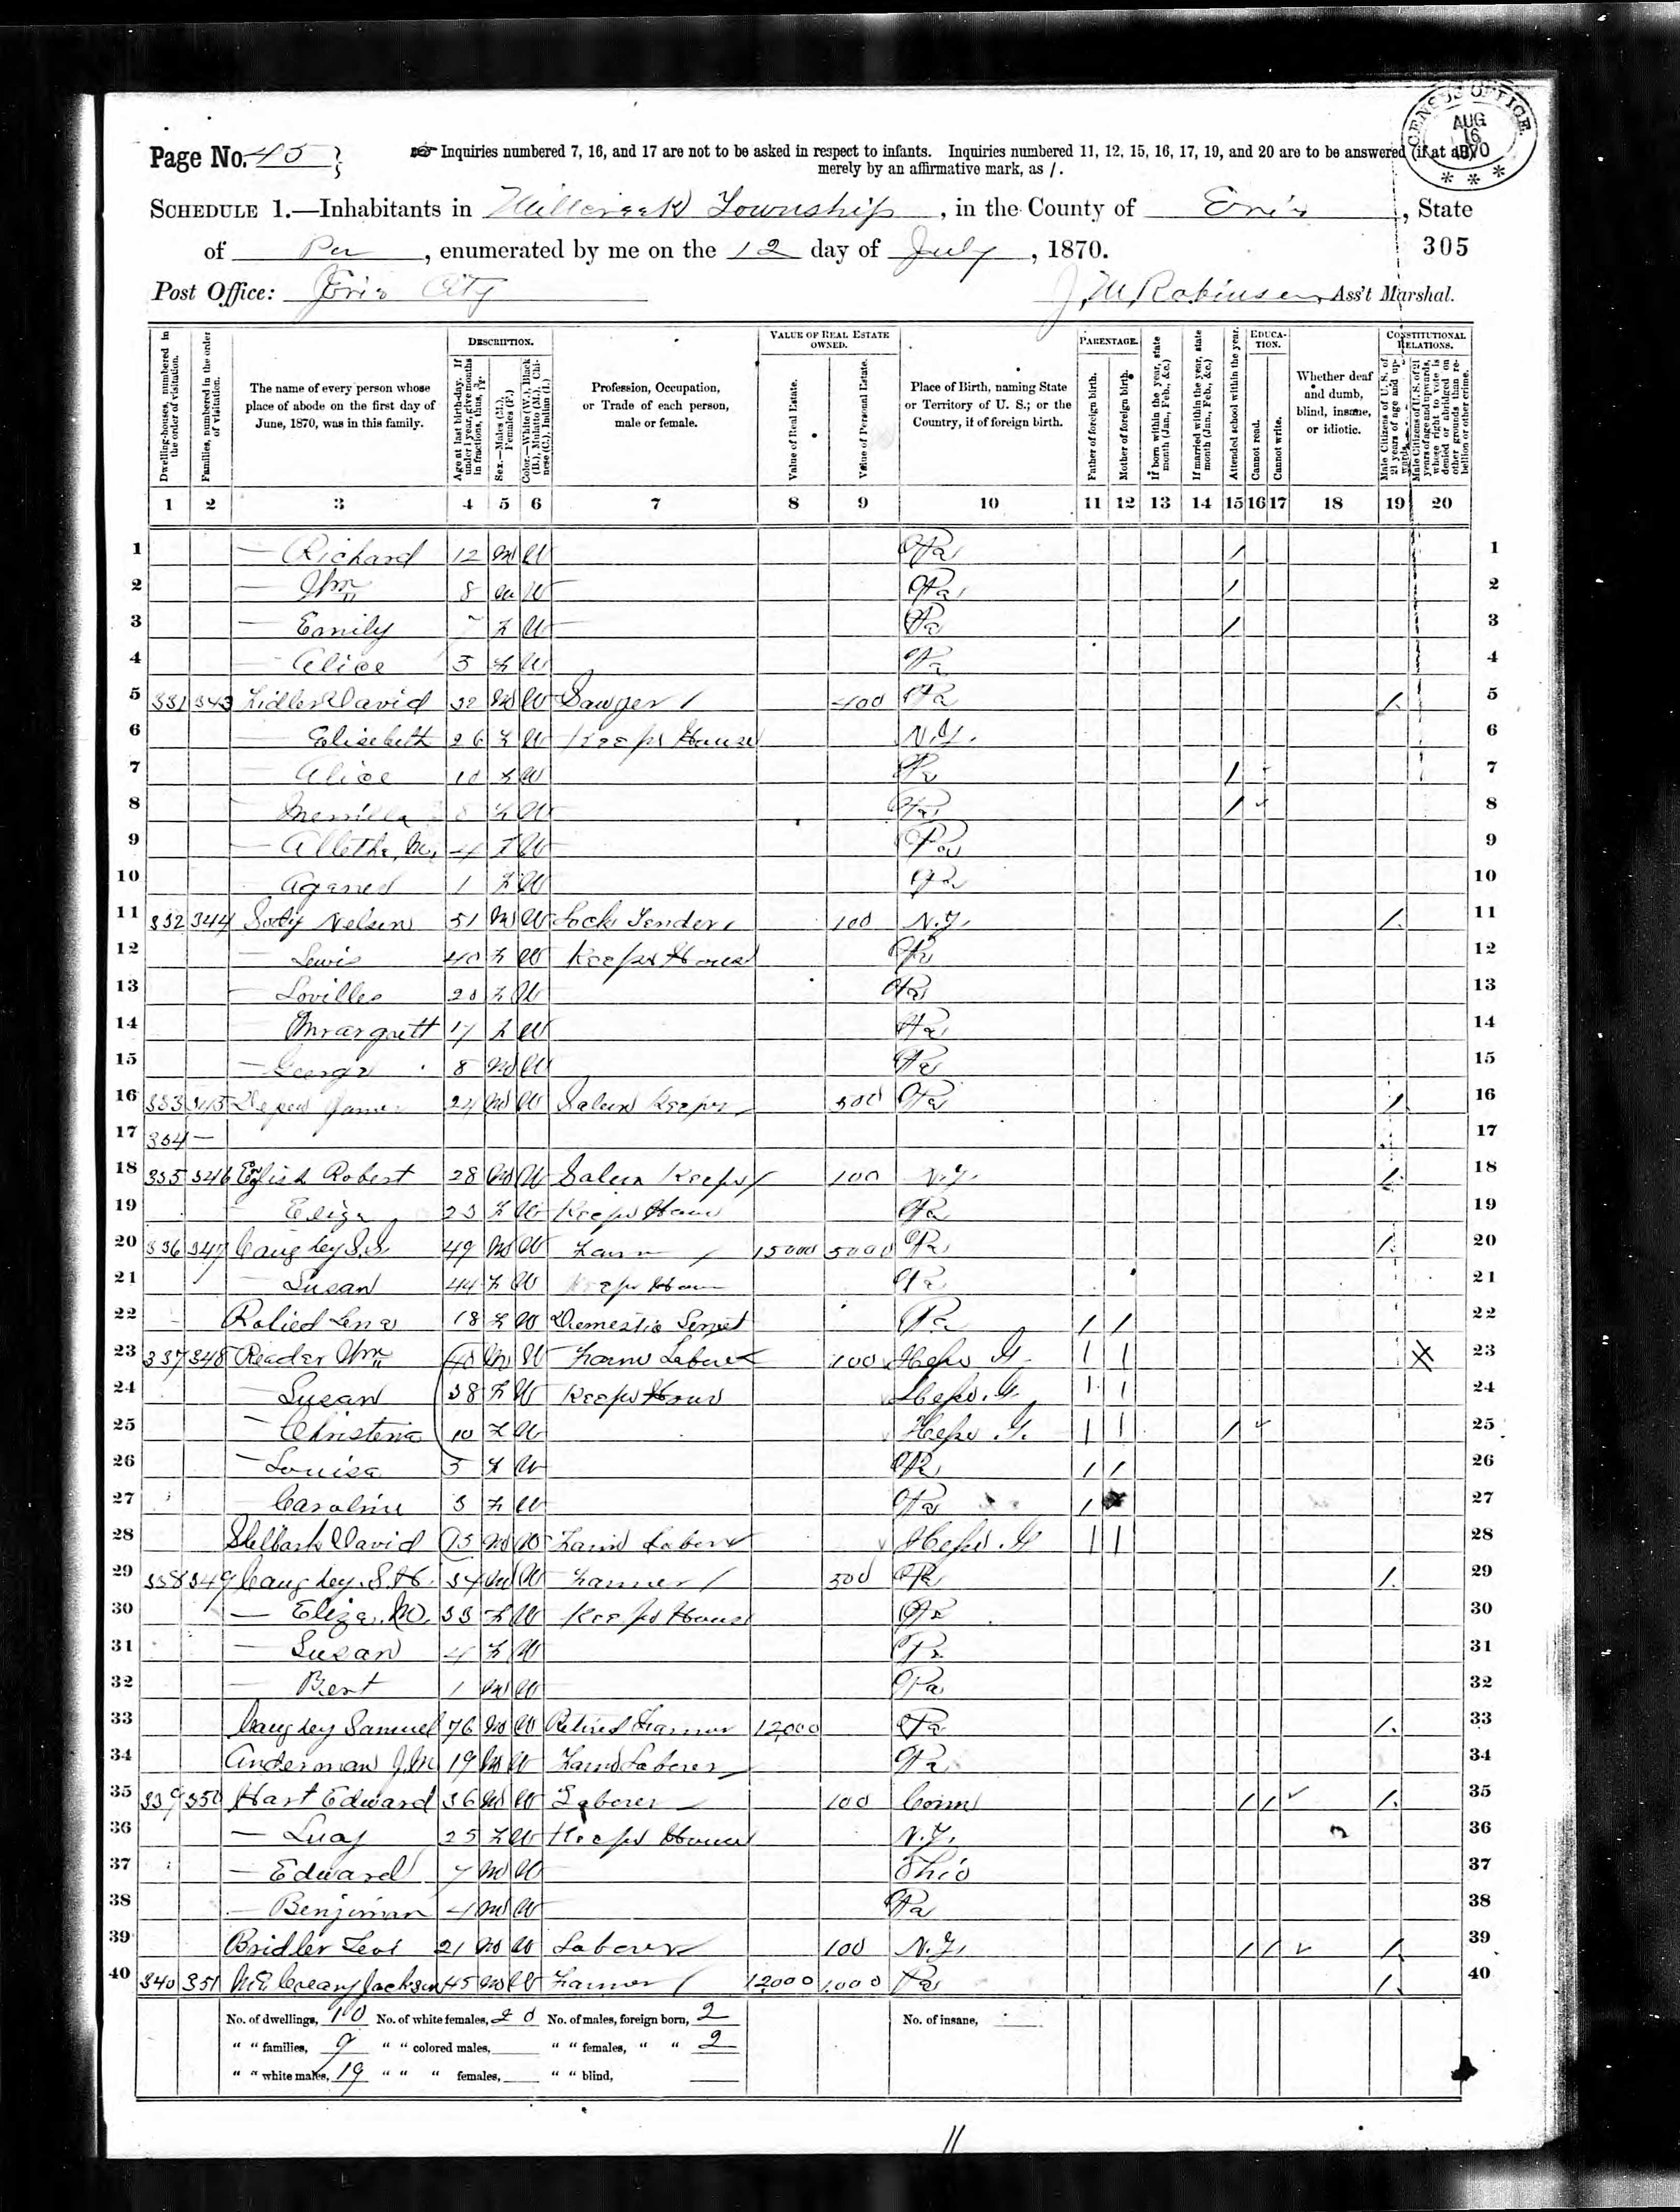 CENSUS OFFICE.
AUG
16
1870
* * *
Page No. 45
Inquiries numbered 7, 16, and 17 are not to be asked in respect to infants. Inquiries numbered 11, 12, 15, 16, 17, 19, and 20 are to be answered (if at all)
merely by an affirmative mark, as /.
SCHEDULE 1.—Inhabitants in Millcreek Township, in the County of Erie, State
of Pa, enumerated by me on the 12 day of July, 1870. 305
Post Office: Erie City J. M. Robinson, Ass't Marshal.
Dwelling-houses, numbered in the order of visitation.
Families, numbered in the order of visitation.
The name of every person whose place of abode on the first day of June, 1870, was in this family.
DESCRIPTION.
Age at last birth-day. If under 1 year, give months in fractions, thus, 3/12.
Sex.—Males (M.), Females (F.)
Color.—White (W.), Black (B.), Mulatto (M.), Chinese (C.), Indian (I.)
Profession, Occupation, or Trade of each person, male or female.
VALUE OF REAL ESTATE OWNED.
Value of Real Estate.
Value of Personal Estate.
Place of Birth, naming State or Territory of U. S.; or the Country, if of foreign birth.
PARENTAGE.
Father of foreign birth.
Mother of foreign birth.
If born within the year, state month (Jan., Feb., &c.)
If married within the year, state month (Jan., Feb., &c.)
Attended school within the year.
EDUCATION.
Cannot read.
Cannot write.
Whether deaf and dumb, blind, insane, or idiotic.
CONSTITUTIONAL RELATIONS.
Male Citizens of U. S. of 21 years of age and upwards.
Male Citizens of U. S. of 21 years of age and upwards, whose right to vote is denied or abridged on other grounds than rebellion or other crime.
1 2 3 4 5 6 7 8 9 10 11 12 13 14 15 16 17 18 19 20
1 — Richard 12 M W Pa / 1
2 — Wm 8 M W Pa / 2
3 — Emily 7 F W Pa / 3
4 — Alice 5 F W Pa 4
5 331 343 David 32 M W Sawyer / 400 Pa / 5
6 — Elisebeth 26 F W Keeps House N.Y. 6
7 — Alice 10 F W Pa / 7
8 — 8 F W Pa / 8
9 — Alletha, M, 4 F W Pa 9
10 — Aganes 1 F W Pa 10
11 332 344 Nelson 51 M W Lock Tender 100 N.Y. / 11
12 — Lewis 40 F W Keeps House Pa 12
13 — Lovilles 20 F W Pa 13
14 — Mrargrett 17 F W Pa 14
15 — George 8 M W Pa 15
16 333 345 James 24 M W Saleon Keeper 500 Pa / 16
17 334 — 17
18 335 346 Robert 28 M W Saleon Keeper / 100 N.Y. / 18
19 Eliza 23 F W Keeps House Pa 19
20 336 347 Caughey S.S. 49 M W Farmer / 15000 5000 Pa / 20
21 — Susan 44 F W Keeps House Pa 21
22 Lena 18 F W Domestic Servet Pa / / 22
23 337 348 Reader Wm 40 M W Farm Laborer 100 Heps G. / / X 23
24 — Susan 38 F W Keeps House Heps. G. / / 24
25 — Christena 10 F W Heps. G. / / / 25
26 — Louisa 5 F W Pa / / 26
27 — Caroline 3 F W Pa / 27
28 David 15 M W Farm Laborer Heps G / / 28
29 338 349 Caughey. S.H. 34 M W Farmer / 500 Pa / 29
30 — Eliza. M. 33 F W Keeps House Pa 30
31 — Susan 4 F W Pa 31
32 — Bert 1 M W Pa 32
33 Caughey Samuel 76 M W Retired Farmer 12,000 Pa / 33
34 Anderman J.M 19 M W Farm Laborer Pa 34
35 339 350 Hart Edward 36 M W Laborer 100 Conn / / / 35
36 — Lucy 25 F W Keeps House N.Y. 36
37 — Edward 7 M W Ohio 37
38 — Benjiman 4 M W Pa 38
39 Bridler Levi 21 M W Laborer 100 N.Y. / / / 39
40 340 351 McCreary Jackson 45 M W Farmer / 12000 1000 Pa / 40
No. of dwellings, 10 No. of white females, 20 No. of males, foreign born, 2 No. of insane,
" " families, 9 " " colored males, " " females, " " 2
" " white males, 19 " " " females, " " blind,
11